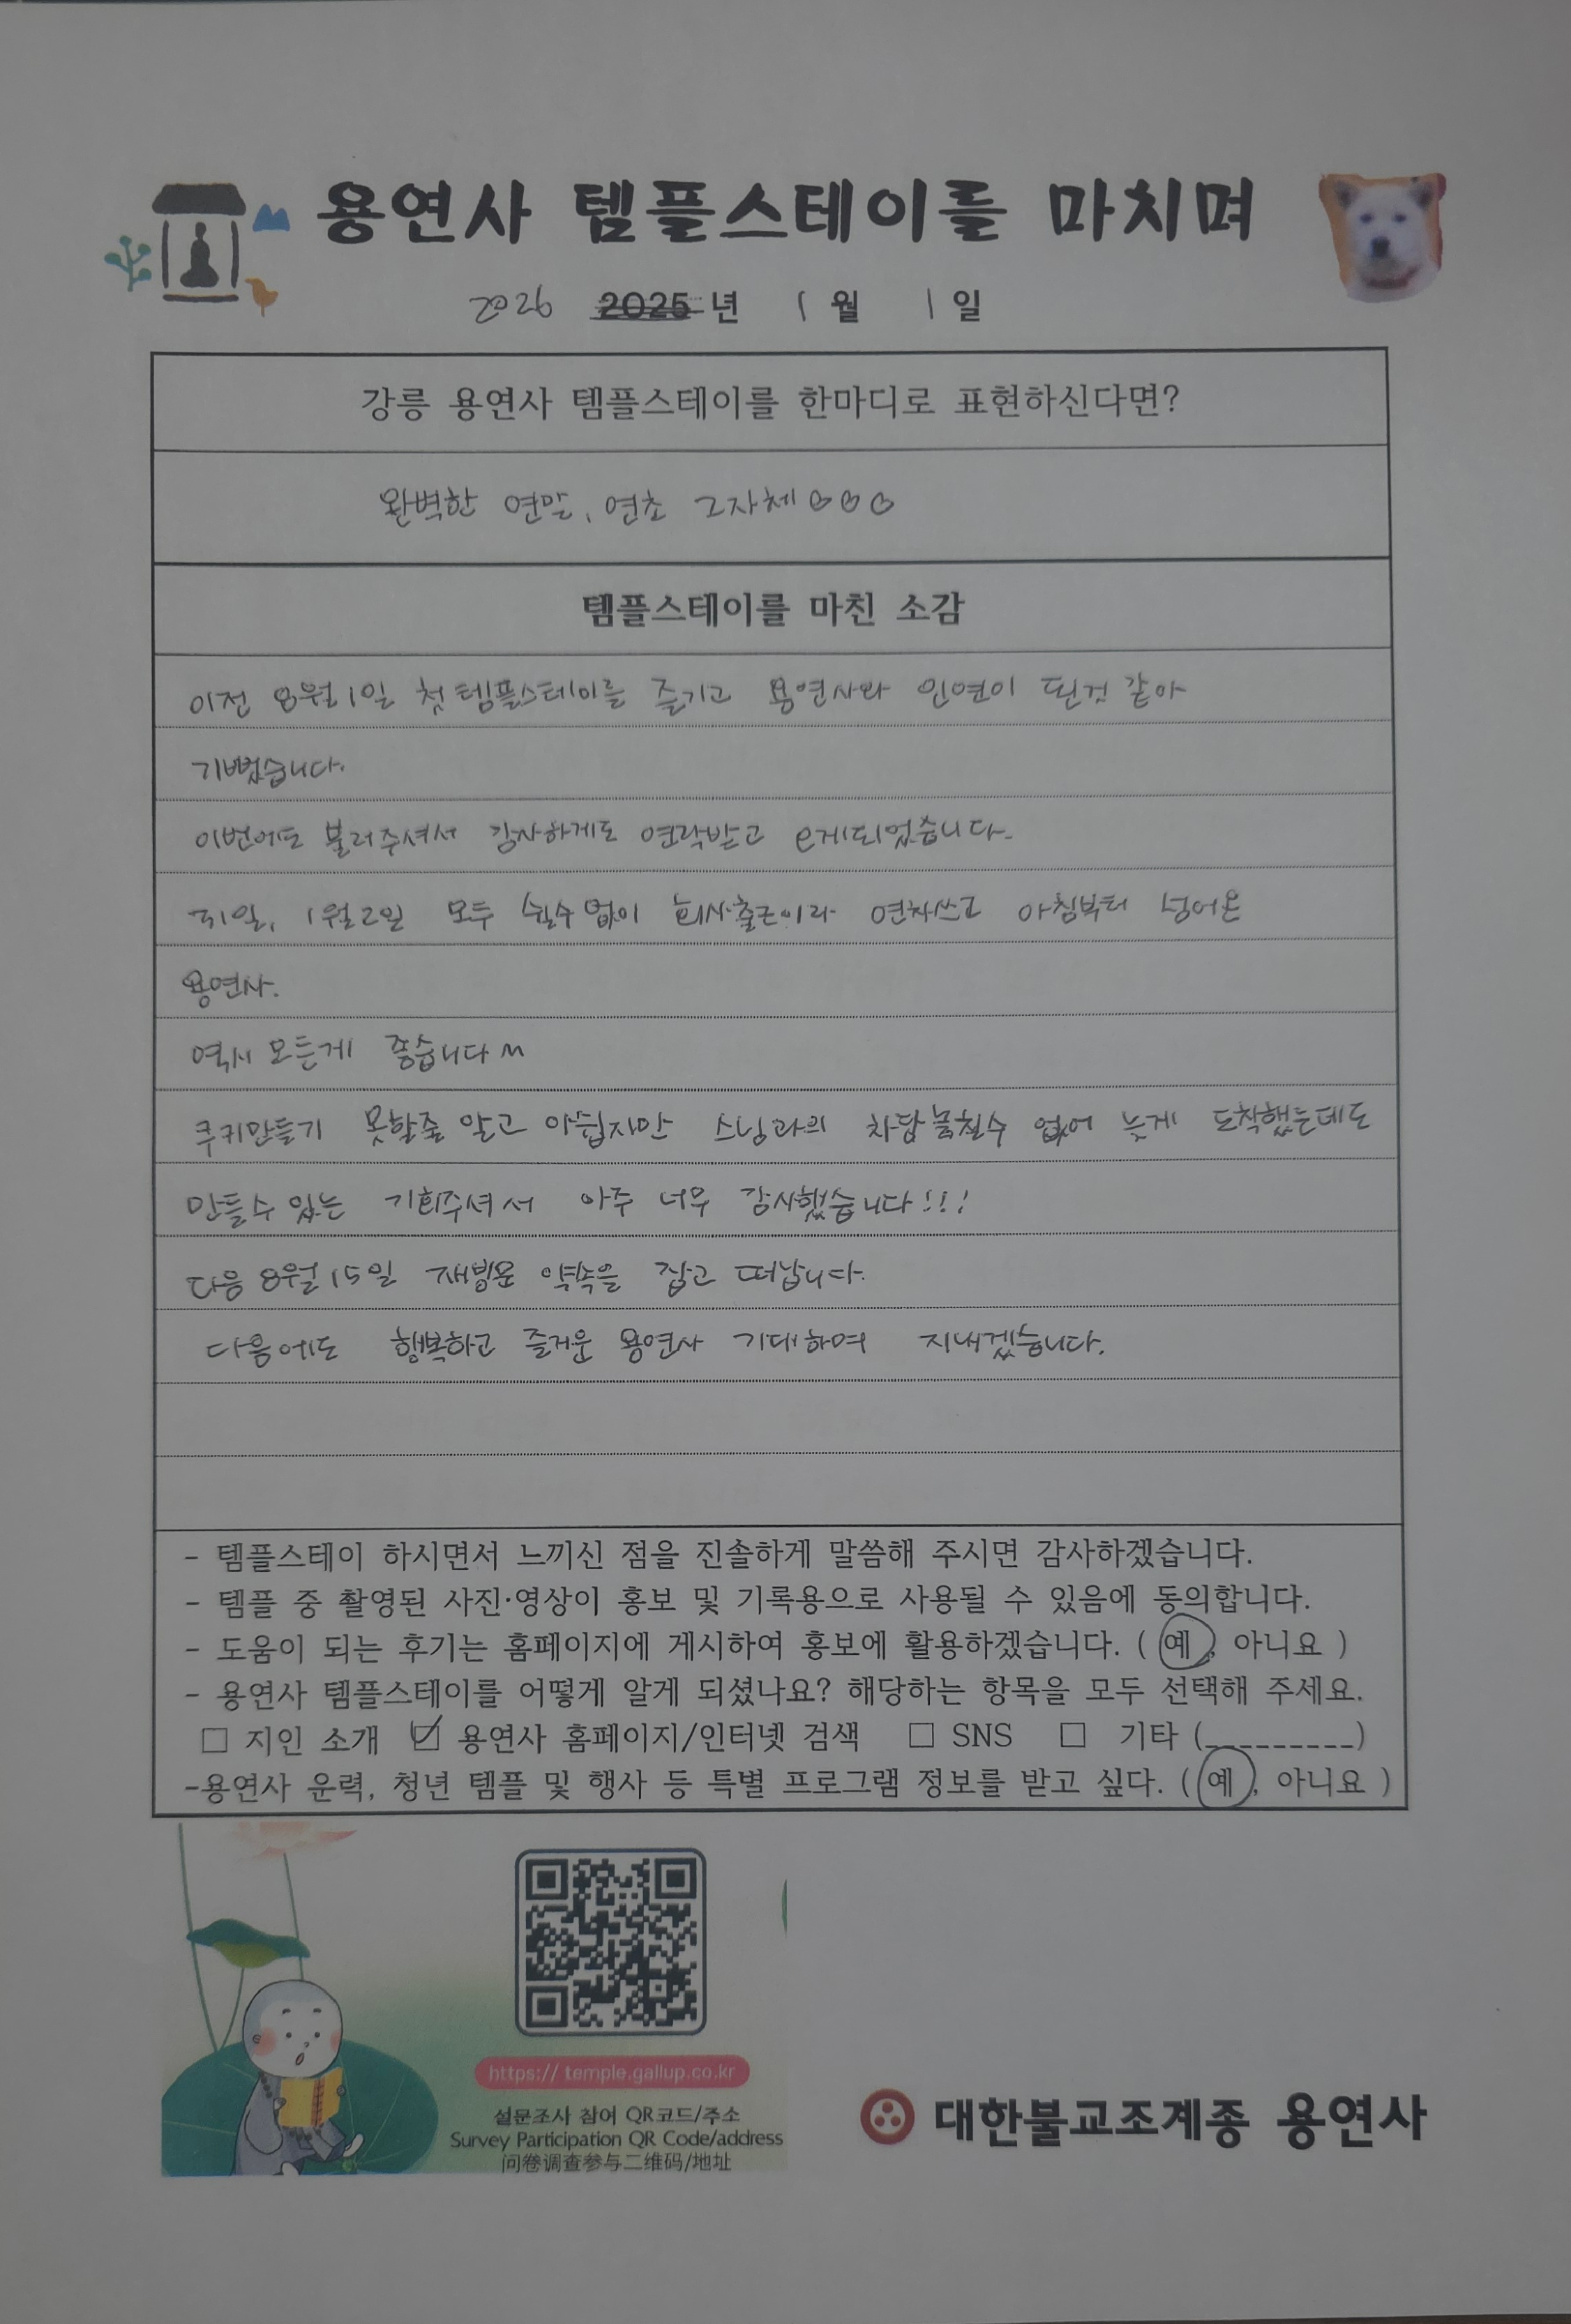 용연사 템플스테이를 마치며
2026 2025년 1월 1일
강릉 용연사 템플스테이를 한마디로 표현하신다면?
완벽한 연말, 연초 그자체♡♡♡
템플스테이를 마친 소감
이전 8월1일 첫템플스테이를 즐기고 용연사와 인연이 된것 같아
기뻤습니다.
이번에도 불러주셔서 감사하게도 연락받고 오게되었습니다.
31일, 1월2일 모두 쉴수 없이 회사출근이라 연차쓰고 아침부터 넘어온
용연사.
역시 모든게 좋습니다
쿠키만들기 못할줄 알고 아쉽지만 스님과의 차담 놓칠수 없어 늦게 도착했는데도
만들수 있는 기회주셔서 아주 너무 감사했습니다!!!
다음 8월15일 재방문 약속을 잡고 떠납니다.
다음에도 행복하고 즐거운 용연사 기대하며 지내겠습니다.
- 템플스테이 하시면서 느끼신 점을 진솔하게 말씀해 주시면 감사하겠습니다.
- 템플 중 촬영된 사진·영상이 홍보 및 기록용으로 사용될 수 있음에 동의합니다.
- 도움이 되는 후기는 홈페이지에 게시하여 홍보에 활용하겠습니다. ( 예, 아니요 )
- 용연사 템플스테이를 어떻게 알게 되셨나요? 해당하는 항목을 모두 선택해 주세요.
□ 지인 소개 ☑ 용연사 홈페이지/인터넷 검색 □ SNS □ 기타 (_________)
-용연사 운력, 청년 템플 및 행사 등 특별 프로그램 정보를 받고 싶다. ( 예, 아니요 )
https:// temple.gallup.co.kr
설문조사 참여 QR코드/주소
Survey Participation QR Code/address
问卷调查参与二维码/地址
대한불교조계종 용연사